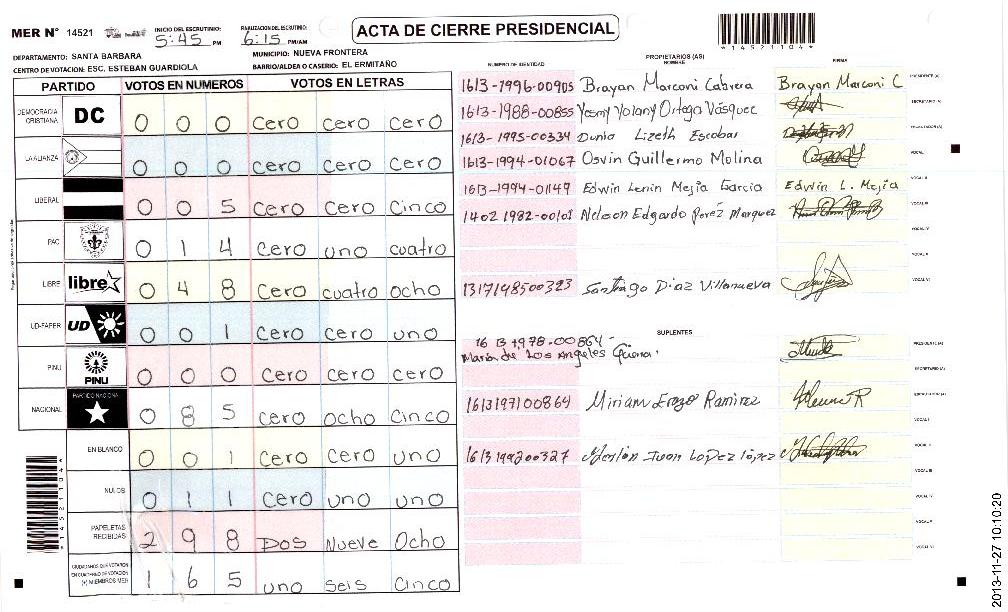 MER N° 14521 INICIO DEL ESCRUTINIO: 5:45 PM FINALIZACION DEL ESCRUTINIO: 6:15 PM/AM
ACTA DE CIERRE PRESIDENCIAL
*14521104*
DEPARTAMENTO: SANTA BARBARA MUNICIPIO: NUEVA FRONTERA
CENTRO DE VOTACION: ESC. ESTEBAN GUARDIOLA BARRIO/ALDEA O CASERIO: EL ERMITAÑO
PARTIDO VOTOS EN NUMEROS VOTOS EN LETRAS
DEMOCRACIA CRISTIANA DC 0 0 0 cero cero cero
LA ALIANZA 0 0 0 cero cero cero
LIBERAL 0 0 5 cero cero cinco
PAC 0 1 4 cero uno cuatro
LIBRE libre 0 4 8 cero cuatro ocho
UD-FAPER UD 0 0 1 cero cero uno
PINU PINU 0 0 0 cero cero cero
NACIONAL PARTIDO NACIONAL 0 8 5 cero ocho cinco
EN BLANCO 0 0 1 cero cero uno
NULOS 0 1 1 cero uno uno
PAPELETAS RECIBIDAS 2 9 8 Dos Nueve Ocho
CIUDADANOS QUE VOTARON EN CUADERNO DE VOTACION (+) MIEMBROS MER 1 6 5 uno seis cinco
*14521104*
PROPIETARIOS (AS)
NUMERO DE IDENTIDAD NOMBRE FIRMA
1613-1996-00905 Brayan Marconi Cabrera Brayan Marconi C PRESIDENTE (A)
1613-1988-00855 Yesmy Yolany Ortega Vásquez SECRETARIO (A)
1613-1995-00334 Dunia Lizeth Escobar ESCRUTADOR (A)
1613-1994-01067 Osvin Guillermo Molina VOCAL I
1613-1994-01149 Edwin Lenin Mejia Garcia Edwin L. Mejia VOCAL II
1402 1982-00101 Nelson Edgardo Perez Marquez VOCAL III
VOCAL IV
VOCAL V
1317198500323 Santiago Diaz Villanueva VOCAL VI
SUPLENTES
1613 1978-00864- PRESIDENTE (A)
Maria de Los Angeles
SECRETARIO (A)
1613197100864 Miriam Erazo Ramirez ESCRUTADOR (A)
VOCAL I
1613199200327 Juan Lopez lópez VOCAL II
VOCAL III
VOCAL IV
VOCAL V
VOCAL VI
2013-11-27 10:10:20